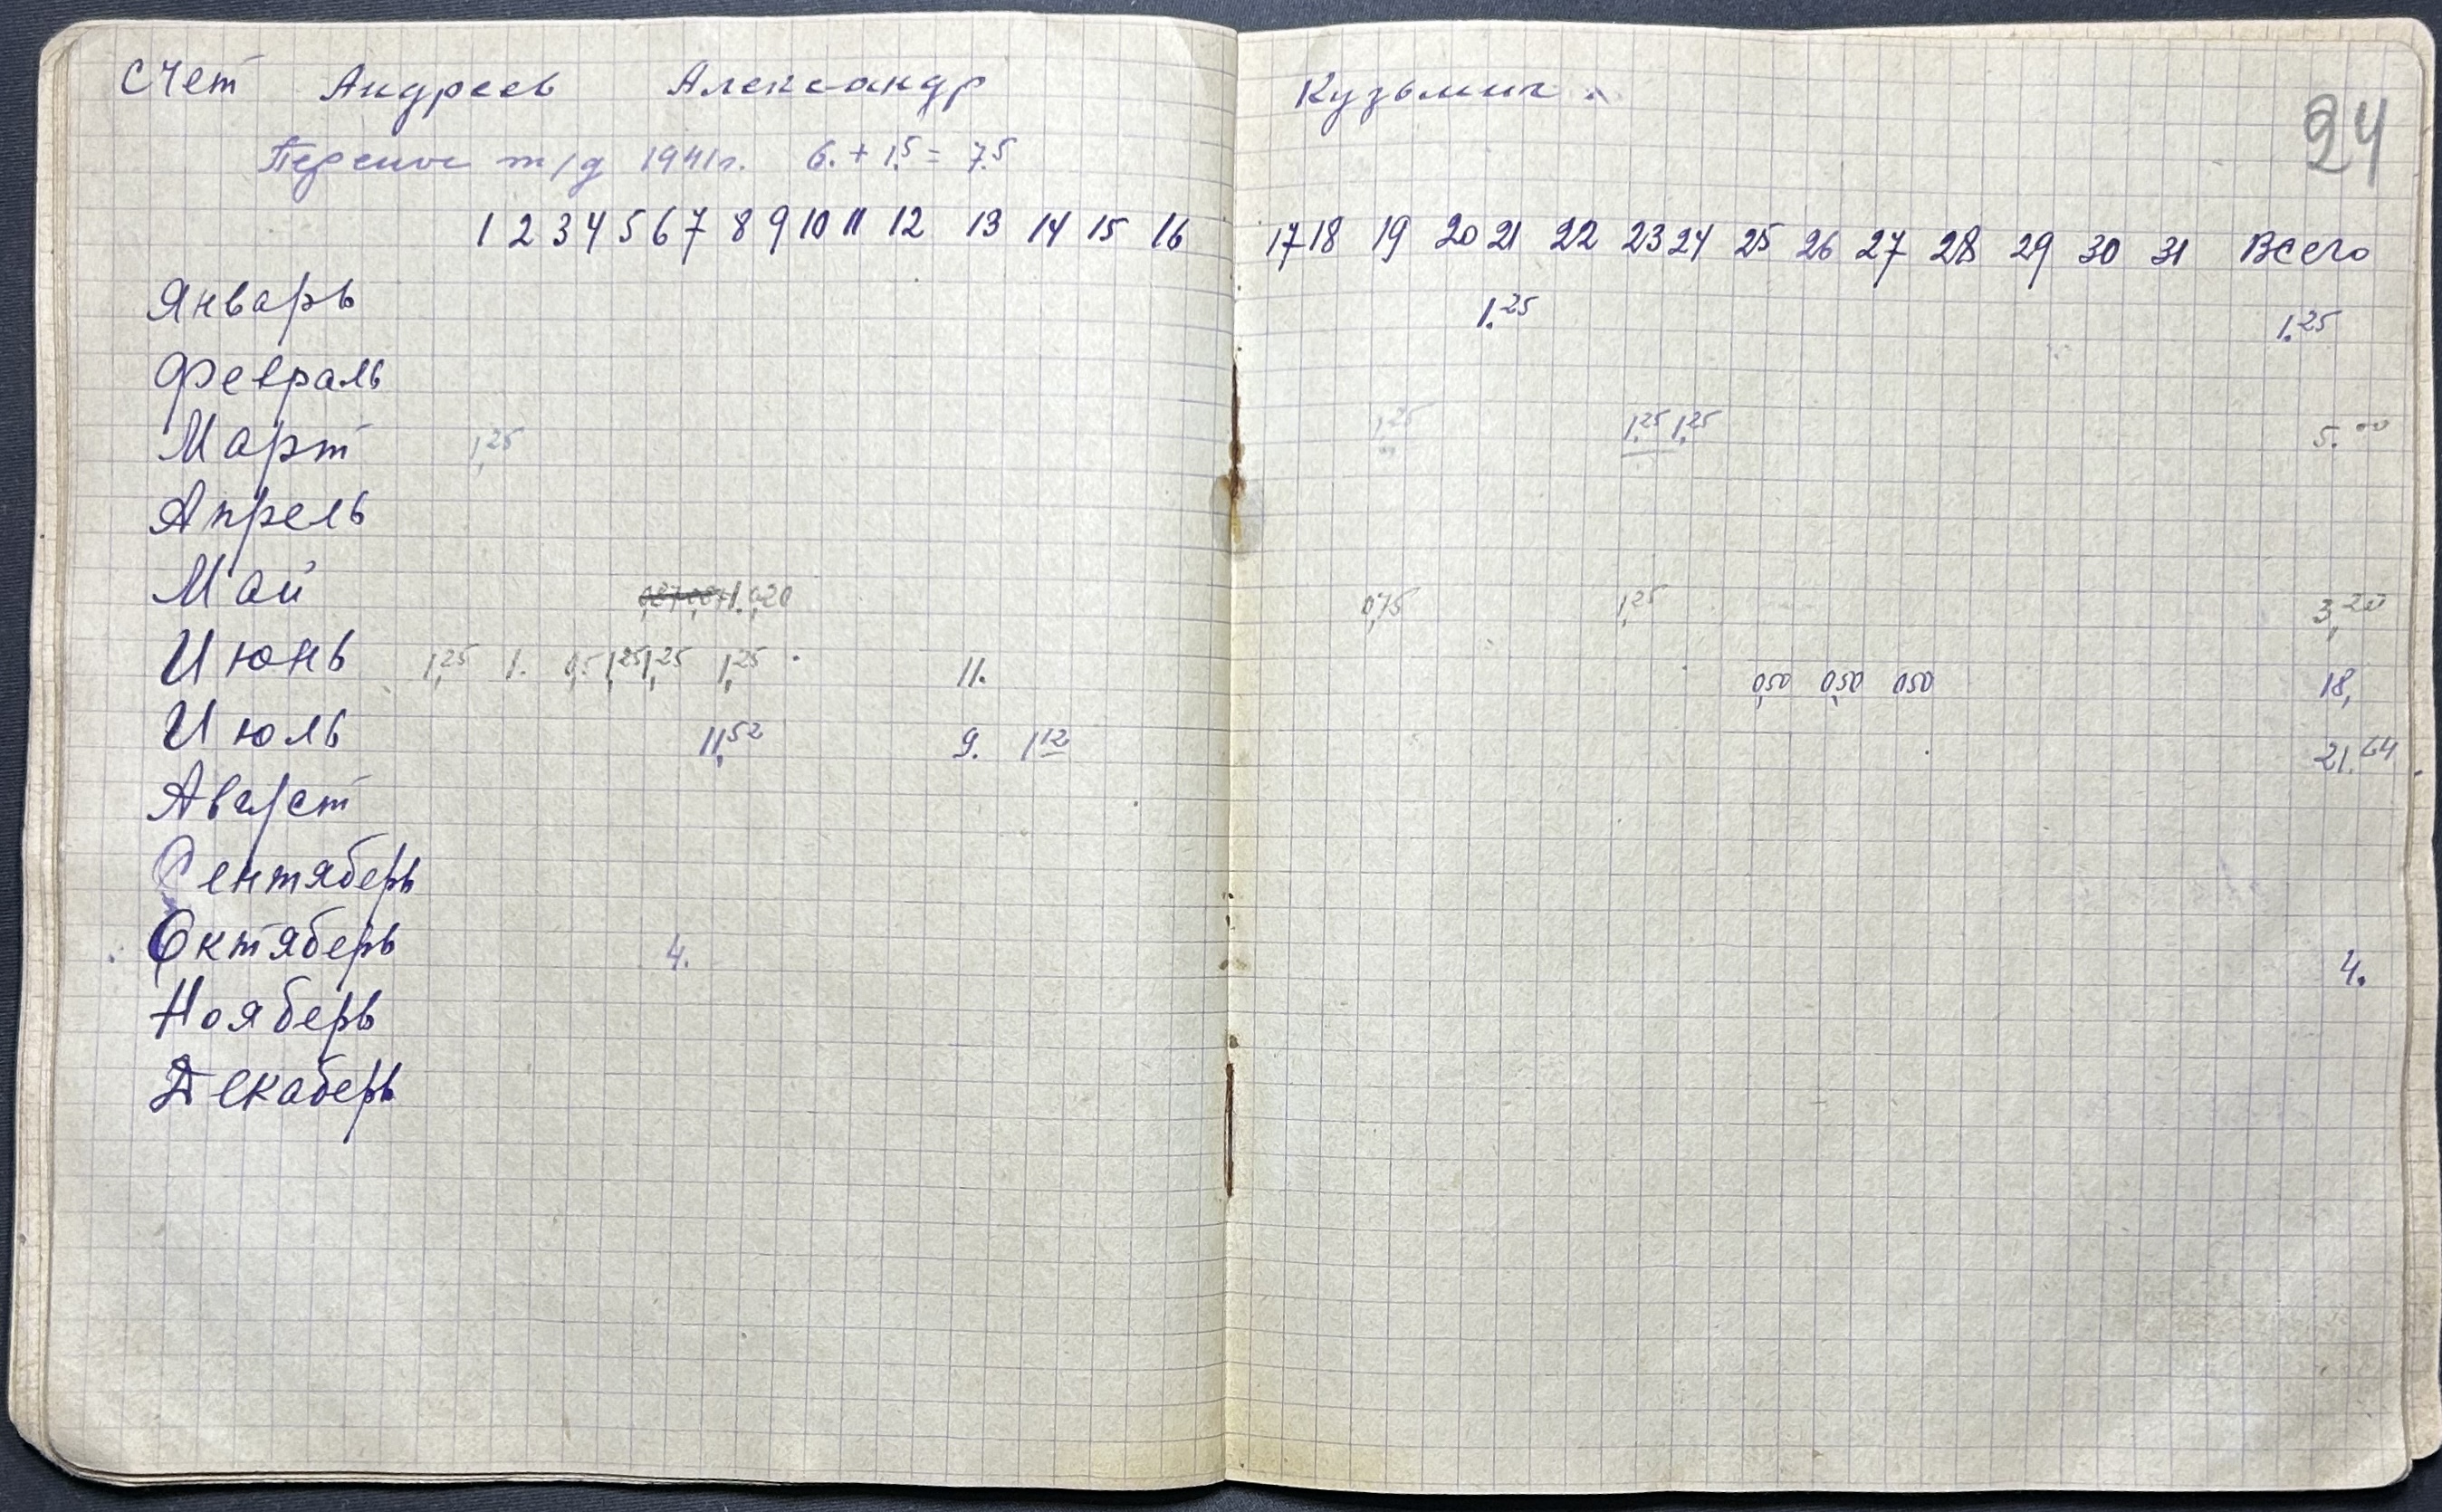 Счет Андреев Александр Кузьмич.
24
Перенос т/д 1941г. 6. + 1.5 = 7.5
1 2 3 4 5 6 7 8 9 10 11 12 13 14 15 16 17 18 19 20 21 22 23 24 25 26 27 28 29 30 31 Всего
Январь 1.25 1.25
Февраль
Март 1,25 1,25 1,25 1,25 5.00
Апрель
Май 1. 0,20 0,75 1,25 3,20
Июнь 1,25 1. 0,5 1,25 1,25 1,25 11. 0,50 0,50 0,50 18,
Июль 11,52 9. 1 12 21.64
Август
Сентяберь
Октяберь 4. 4.
Нояберь
Декаберь